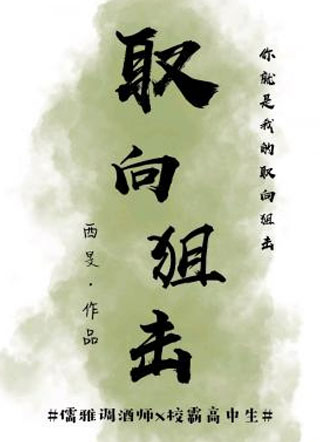 你就是我的取向狙击
取向狙击
西旻·作品
#儒雅调酒师x校霸高中生#